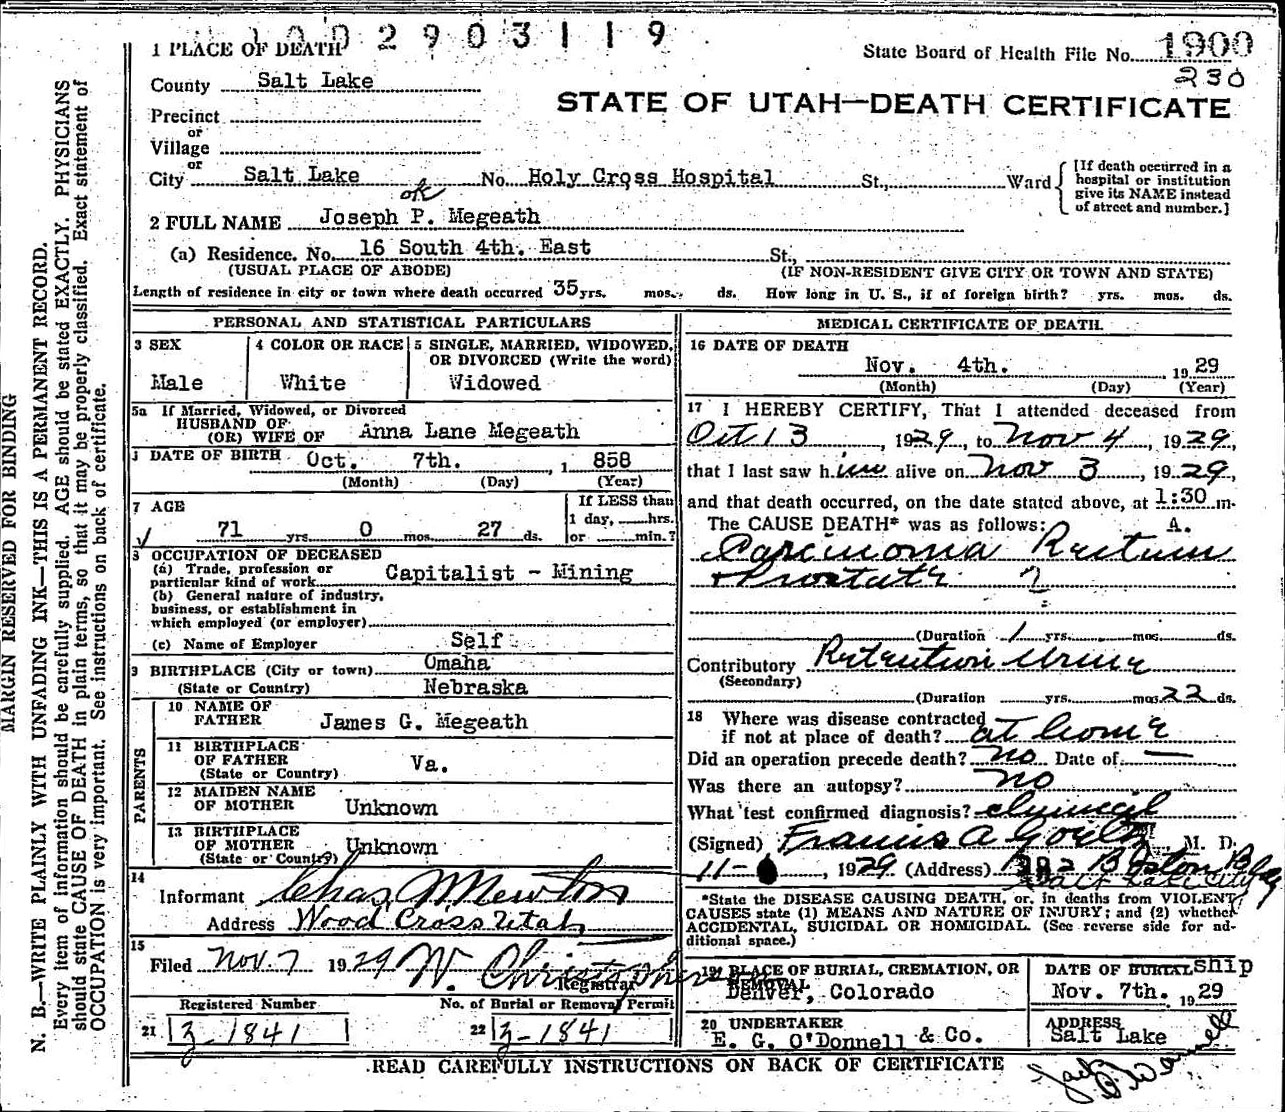 1002903119
1 PLACE OF DEATH
State Board of Health File No. 1900
230
County Salt Lake
STATE OF UTAH—DEATH CERTIFICATE
Precinct
or
Village
or
City Salt Lake No. Holy Cross Hospital St., Ward
[If death occurred in a hospital or institution give its NAME instead of street and number.]
ok
2 FULL NAME Joseph P. Megeath
(a) Residence. No. 16 South 4th. East St.,
(USUAL PLACE OF ABODE) (IF NON-RESIDENT GIVE CITY OR TOWN AND STATE)
Length of residence in city or town where death occurred 35 yrs. mos. ds. How long in U. S., if of foreign birth? yrs. mos. ds.
PERSONAL AND STATISTICAL PARTICULARS
3 SEX
Male
4 COLOR OR RACE
White
5 SINGLE, MARRIED, WIDOWED, OR DIVORCED (Write the word)
Widowed
5a If Married, Widowed, or Divorced
HUSBAND OF
(OR) WIFE OF Anna Lane Megeath
DATE OF BIRTH Oct. 7th., 1 858
(Month) (Day) (Year)
7 AGE
71 yrs. 0 mos. 27 ds.
If LESS than
1 day, hrs.
or min.?
8 OCCUPATION OF DECEASED
(a) Trade, profession or
particular kind of work Capitalist - Mining
(b) General nature of industry,
business, or establishment in
which employed (or employer)
(c) Name of Employer Self
9 BIRTHPLACE (City or town) Omaha
(State or Country) Nebraska
PARENTS
10 NAME OF
FATHER James G. Megeath
11 BIRTHPLACE
OF FATHER Va.
(State or Country)
12 MAIDEN NAME
OF MOTHER Unknown
13 BIRTHPLACE
OF MOTHER Unknown
(State or Country)
14
Informant Chas J Mewton
Address Wood Cross Utah
15
Filed Nov. 7 1929 W. Christopherson
Registrar
Registered Number No. of Burial or Removal Permit
21 Z-1841 22 Z-1841
MEDICAL CERTIFICATE OF DEATH.
16 DATE OF DEATH
Nov. 4th. 19 29
(Month) (Day) (Year)
17 I HEREBY CERTIFY, That I attended deceased from
Oct 13, 1929, to Nov 4, 1929,
that I last saw him alive on Nov 3, 1929,
and that death occurred, on the date stated above, at 1:30 m.
The CAUSE DEATH* was as follows: A.
Carcinoma Rectum
+ Prostate ?
(Duration 1 yrs. mos. ds.
Contributory Retention Urine
(Secondary)
(Duration yrs. mos. 22 ds.
18 Where was disease contracted
if not at place of death? at home
Did an operation precede death? no Date of —
Was there an autopsy? no
What test confirmed diagnosis? clinical
(Signed) Francis A Goeltz M. D.
11- , 1929 (Address) Boston Bldg
Salt Lake City
*State the DISEASE CAUSING DEATH, or, in deaths from VIOLENT
CAUSES state (1) MEANS AND NATURE OF INJURY; and (2) whether
ACCIDENTAL, SUICIDAL OR HOMICIDAL. (See reverse side for ad-
ditional space.)
19 PLACE OF BURIAL, CREMATION, OR
REMOVAL
Denver, Colorado
DATE OF BURIAL ship
Nov. 7th. 19 29
20 UNDERTAKER
E. G. O'Donnell & Co.
ADDRESS
Salt Lake
Jack O'Donnell
READ CAREFULLY INSTRUCTIONS ON BACK OF CERTIFICATE
MARGIN RESERVED FOR BINDING
N. B.—WRITE PLAINLY WITH UNFADING INK—THIS IS A PERMANENT RECORD.
Every item of information should be carefully supplied. AGE should be stated EXACTLY. PHYSICIANS
should state CAUSE OF DEATH in plain terms, so that it may be properly classified. Exact statement of
OCCUPATION is very important. See instructions on back of certificate.